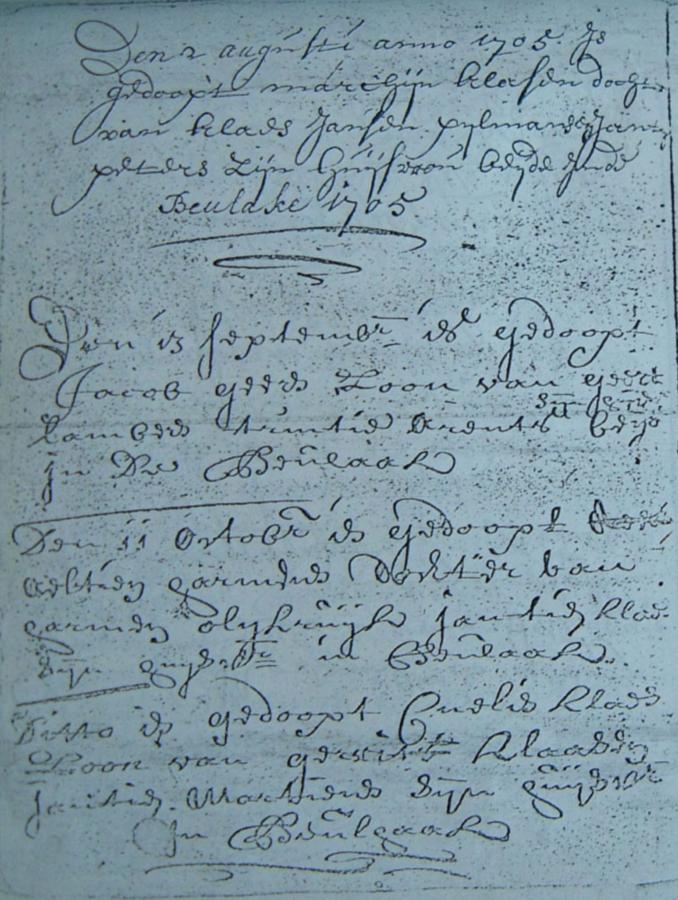 Den 2 augusti anno 1705 Js
gedoopt marchijn klasen docht
van klaes Jansen pylman Jan
peters zijn huijsvrou beyde Jnde
Beulake 1705
Den 13 septembr is gedoopt
Jacob geers Zoon van geert
Lambers truntie Arents beyd
jn De Beulaak
Den 11 Octobr is gedoopt
aeltien garmens Dochter van
garmen olykruijk jantien klas
sijn huijsvr in Beulaak.
Ditto is gedoopt Cnelis klaes
Zoon van gerrit klaassen
jantien Martiens sijn huijsvr
Jn Beulgaak